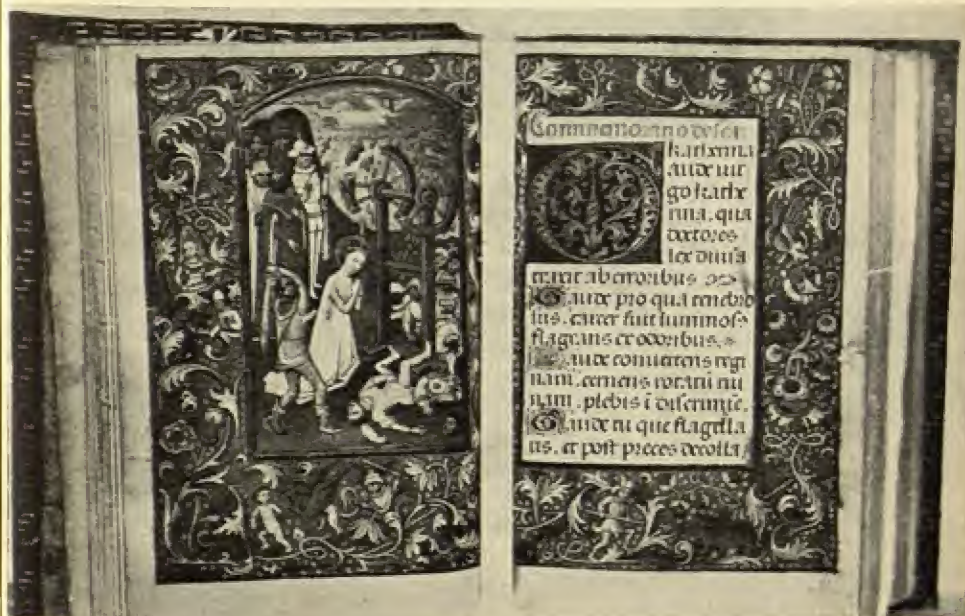 katherina
Gaude uir
go kathe
rina. quā
doctores
lex diuīa
traxit ab erroribus
Gaude pro qua tenebro
sus. carcer fuit luminosꝰ
flagrans et odoribus.
Gaude conuertens regi
nam. cernens rotarū rui
nam. plebis ī discrimīe.
Gaude tu que flagella
tis. et post preces decolla